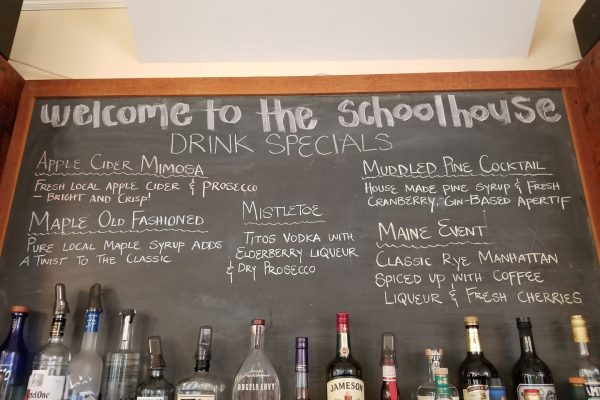 Welcome to the Schoolhouse
DRINK SPECIALS
APPLE CIDER MIMOSA
FRESH LOCAL APPLE CIDER & PROSECCO
- BRIGHT AND CRISP!
MAPLE OLD FASHIONED
PURE LOCAL MAPLE SYRUP ADDS
A TWIST TO THE CLASSIC
MISTLETOE
TITOS VODKA WITH
ELDERBERRY LIQUEUR
& DRY PROSECCO
MUDDLED PINE COCKTAIL
HOUSE MADE PINE SYRUP & FRESH
CRANBERRY, GIN-BASED APERTIF
MAINE EVENT
CLASSIC RYE MANHATTAN
SPICED UP WITH COFFEE
LIQUEUR & FRESH CHERRIES
ANGEL'S ENVY
JAMESON